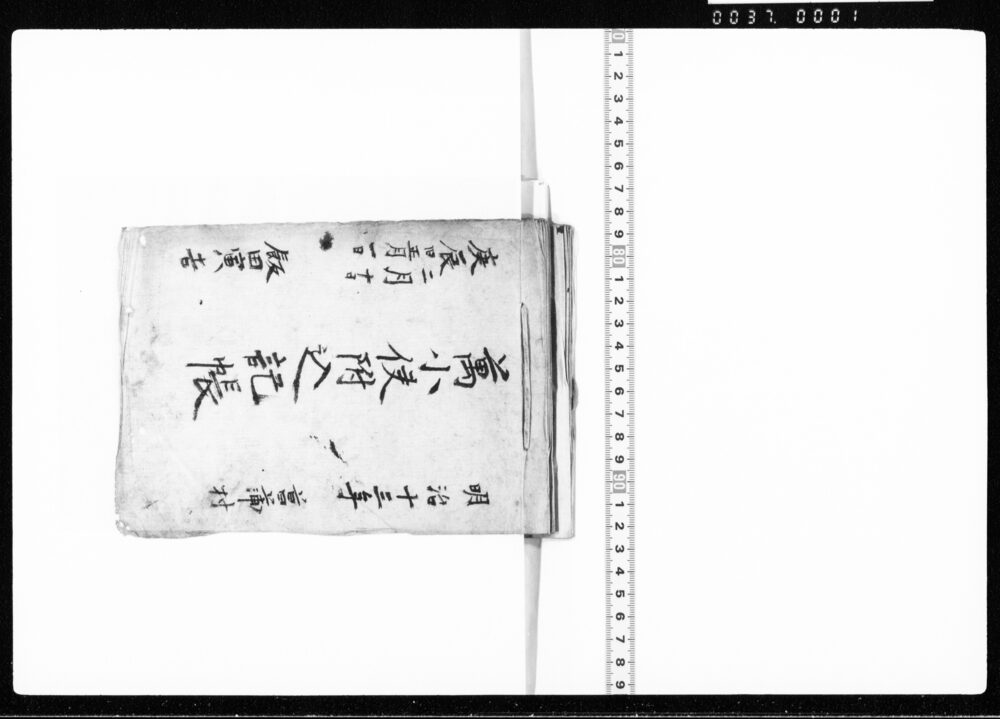 0037. 0001
明治十三年 菖蒲村
萬小使附込記帳
庚辰 二月十日
旧正月一日
飯田寅吉
0 1 2 3 4 5 6 7 8 9 80 1 2 3 4 5 6 7 8 9 90 1 2 3 4 5 6 7 8 9